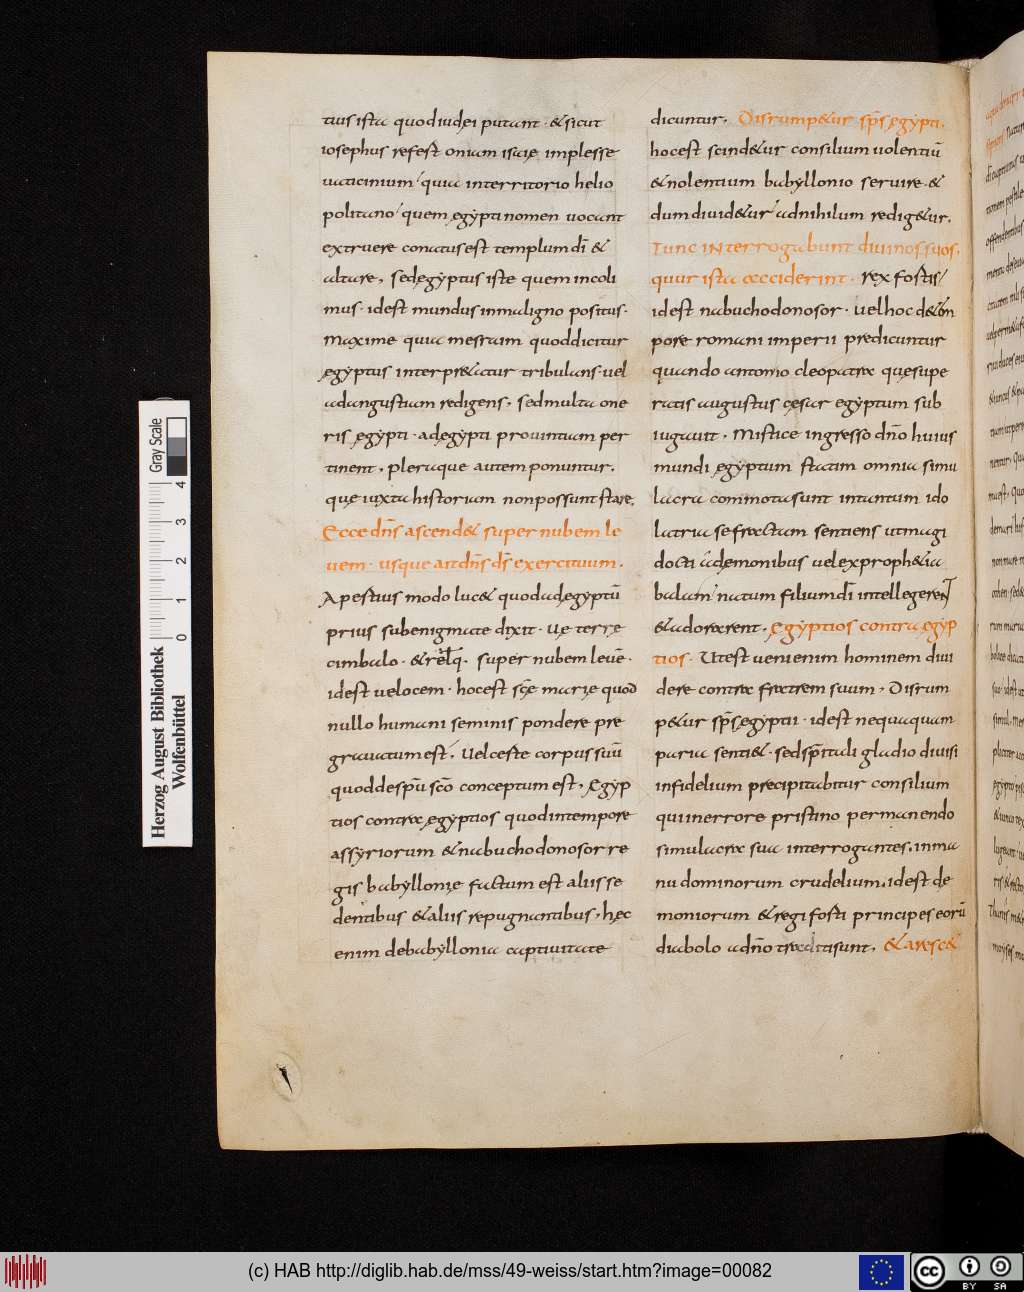 tius ista quod iudęi putant · & sicut
iosephus refest oniam isaię implesse
uaticinium quia in territorio helio
politano quem ęgẏpti nomen uocant
extruere conatus est templum dī &
altare, sed ęgẏptus iste quem incoli
mus · idest mundus in maligno positus ·
Maxime quia mesraim quod dicitur
ęgẏptus interpr&atur tribulans · uel
ad angustiam redigens, sed multa one
ris ęgẏpti · ad ęgẏpti prouintiam per
tinent, pleraque autem ponuntur,
quę iuxta historiam non possunt stare,
Ecce dn̄s ascend& super nubem le
uem · usque ait dn̄s ds̄ exercituum ·
Apestius modo luc& quod ad ęgẏptū
prius sub enigmate dixit · uę terrę
cimbalo · & relq̄ · super nubem leuē ·
idest uelocem · hocest sc̄ę marię quod
nullo humani seminis pondere pre
grauatum est, Uel ceste corpus suū
quod de spū sc̄o conceptum est, Ęgẏp
tios contra ęgẏptios quod in tempore
assẏriorum & nabuchodonosor re
gis babẏllonię factum est aliis se
dentibus & aliis repugnantibus, hęc
enim de babẏllonia captiuitate
dicuntur, Disrump&ur sp̄s ęgẏpti,
hocest scind&ur consilium uolentiū
& nolentium babẏllonio seruire · &
dum diuid&ur ad nihilum redig&ur,
Tunc interrogabunt diuinos suos,
quur ista acciderint · rex fostis
idest nabuchodonosor · uel hoc de tem
pore romani imperii predicuntur
quando antonio cleopatra quę supe
ratis augustus cęsar egẏptum sub
iugauit, Mistice ingresso dn̄o huius
mundi ęgẏptum statim omnia simu
lacra commota sunt intantum ido
latria se fractam sentiens ut magi
docti a dęmonibus uel ex proph&ia
balam natum filium dī intellegerent
& adorarent, Ęgẏptios contra ęgẏp
tios · Ut est ueni enim hominem diui
dere contra fratrem suum, Disrum
p&ur sp̄s ęgẏptii · idest nequaquam
paria senti& · sed sp̄itali gladio diuisi
infidelium precipitabitur consilium
qui in errore pristino permanendo
simulacra sua interrogantes, in ma
nu dominorum crudelium, idest de
moniorum & regi fosti principes eorū
diabolo a dn̄o tradita sunt, & aresc&
Herzog August Bibliothek
Wolfenbüttel
Gray Scale
0 1 2 3 4
(c) HAB http://diglib.hab.de/mss/49-weiss/start.htm?image=00082
cc BY SA